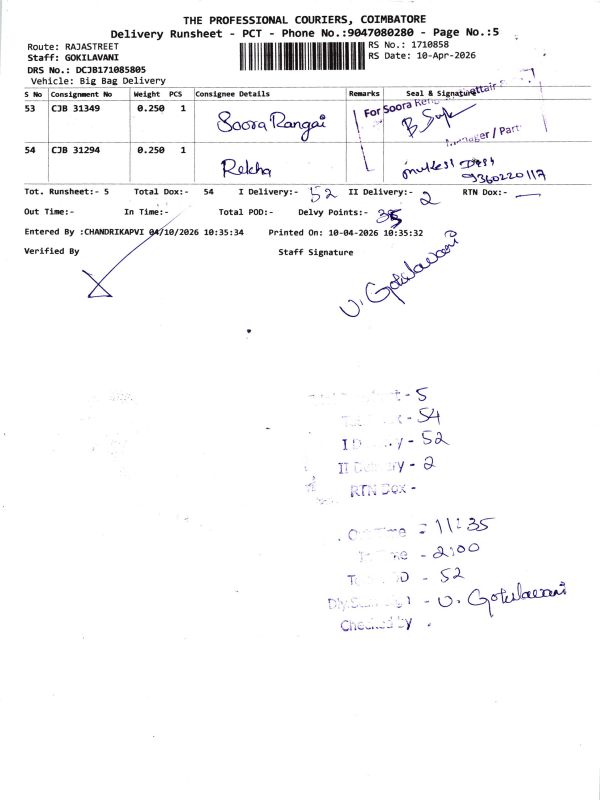 THE PROFESSIONAL COURIERS, COIMBATORE
Delivery Runsheet - PCT - Phone No.:9047080280 - Page No.:5
Route: RAJASTREET
Staff: GOKILAVANI
DRS No.: DCJB171085805
Vehicle: Big Bag Delivery
RS No.: 1710858
RS Date: 10-Apr-2026
S No Consignment No Weight PCS Consignee Details Remarks Seal & Signature
53 CJB 31349 0.250 1 Soora Rangai For Soora
Manager / Part
54 CJB 31294 0.250 1 Rekha
9360220117
Tot. Runsheet:- 5 Total Dox:- 54 I Delivery:- 52 II Delivery:- 2 RTN Dox:- —
Out Time:- In Time:- Total POD:- Delvy Points:-
Entered By :CHANDRIKAPVI 04/10/2026 10:35:34 Printed On: 10-04-2026 10:35:32
Verified By Staff Signature
V. Gokilavani
- 5
- 54
- 52
II Delivery - 2
RTN Dox -
Out Time = 11:35
- 2:00
- 52
- V. Gokilavani
Checked by